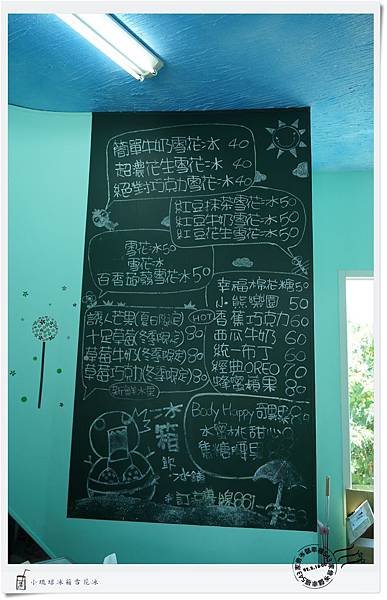 簡單牛奶雪花冰 40
超濃花生雪花冰 40
絕對巧克力雪花冰 40
紅豆抹茶雪花冰 50
紅豆牛奶雪花冰 50
紅豆花生雪花冰 50
雪花冰 50
雪花冰
百香 雪花冰 50
幸福棉花糖 50
小熊樂園 50
香蕉巧克力 60
西瓜牛奶 60
統一布丁 60
經典OREO 70
蜂蜜蘋果 80
誘人芒果(夏日限定) HOT
十足草莓(冬季限定) 80
草莓牛奶(冬季限定) 80
草莓巧克力(冬季限定) 80
新鮮水果
Body Happy 奇異果
水蜜桃甜心
焦糖
冰箱
冰舖
專線 861-
小琉球冰箱雪花冰